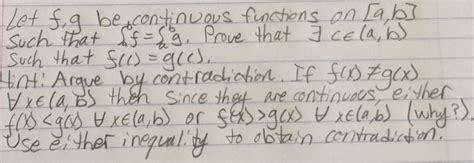 Let f, g be continuous functions on [a,b]
Such that ∫ₐᵇf = ∫ₐᵇg. Prove that ∃ c∈(a,b)
Such that f(c) = g(c).
Hint: Argue by contradiction. If f(x) ≠ g(x)
∀x∈(a,b) then since they are continuous, either
f(x) < g(x) ∀ x∈(a,b) or f(x) > g(x) ∀ x∈(a,b) (why?).
Use either inequality to obtain contradiction.